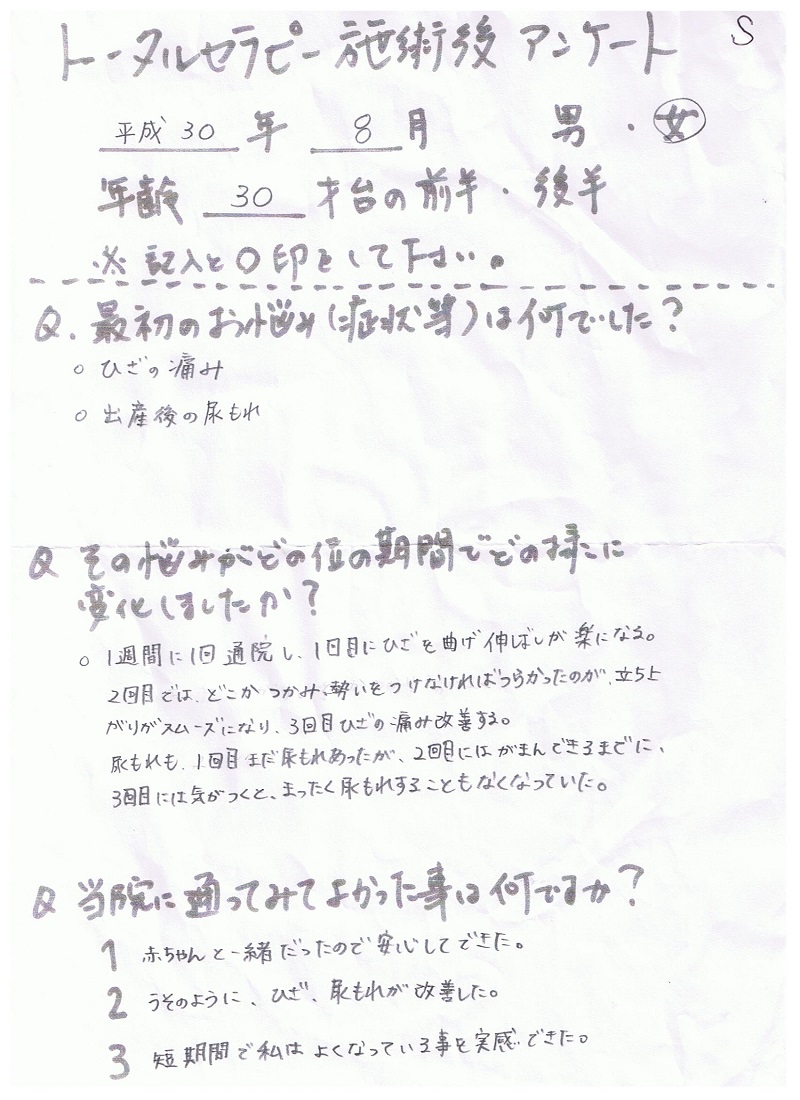 S
トータルセラピー施術後 アンケート
平成 30 年 8 月 男・女
年齢 30 才台の前半・後半
※ 記入と○印をして下さい。
Q. 最初のお悩み(症状等)は何でした?
○ ひざの痛み
○ 出産後の尿もれ
Q その悩みがどの位の期間でどの様に
変化しましたか?
○ 1週間に1回通院し、1回目にひざを曲げ伸ばしが楽になる。
2回目では、どこかつかみ、勢いをつけなければつらかったのが、立ち上
がりがスムーズになり、3回目ひざの痛み改善する。
尿もれも、1回目まだ尿もれあったが、2回目にはがまんできるまでに、
3回目には気がつくと、まったく尿もれすることもなくなっていた。
Q 当院に通ってみてよかった事は何ですか?
1 赤ちゃんと一緒だったので安心してできた。
2 うそのように、ひざ、尿もれが改善した。
3 短期間で私はよくなっている事を実感できた。